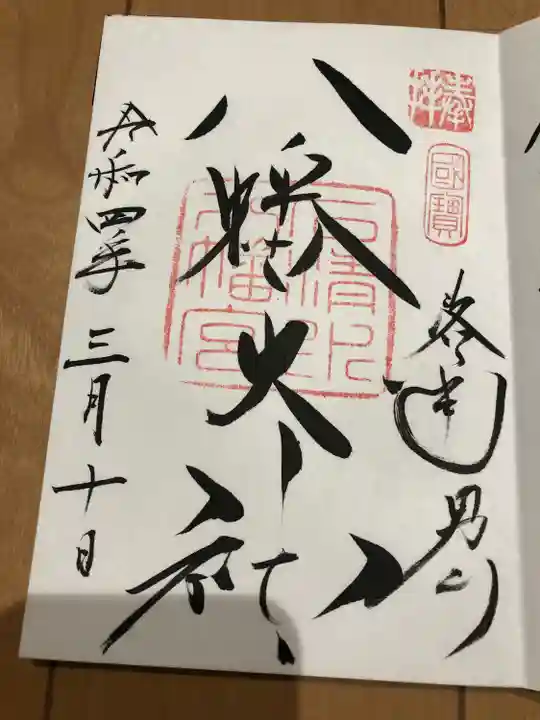 奉拝
國寶
男山
八幡大神
石清水
八幡宮
令和四年三月十日